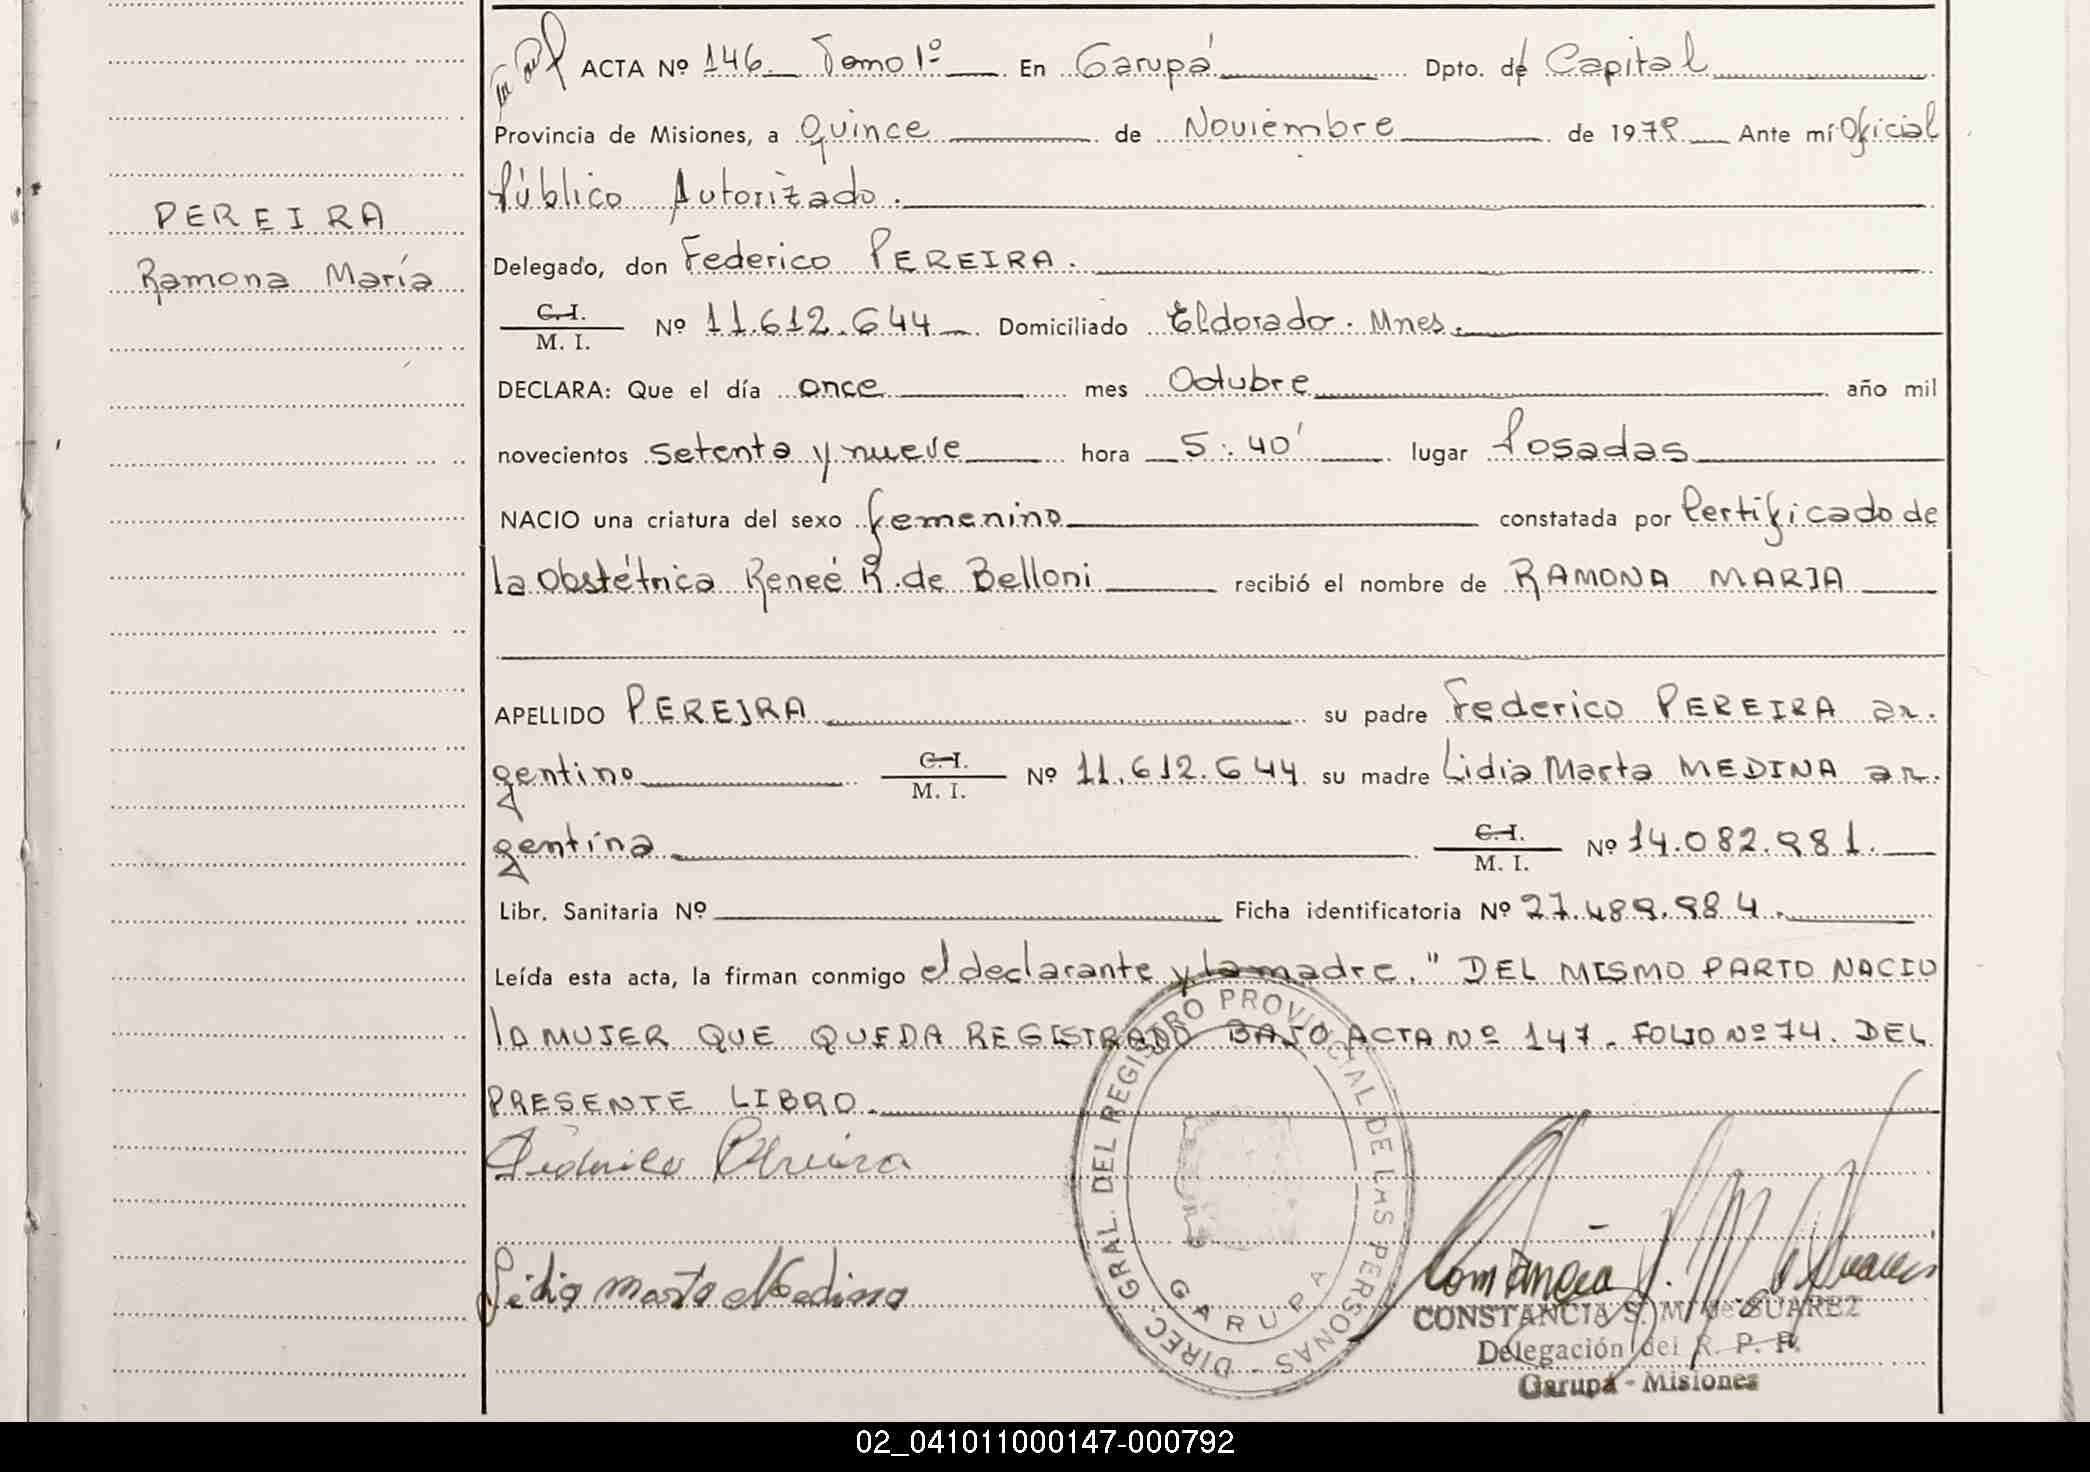 ACTA Nº 146. Tomo 1º En Garupá Dpto. de Capital
Provincia de Misiones, a Quince de Noviembre de 1979 Ante mí Oficial
Público Autorizado.
PEREIRA
Ramona María
Delegado, don Federico PEREIRA.
C.I. / M. I. Nº 11.612.644 Domiciliado Eldorado. Mnes.
DECLARA: Que el día once mes Octubre año mil
novecientos setenta y nueve hora 5:40' lugar Posadas
NACIO una criatura del sexo femenino constatada por Certificado de
la Obstétrica Reneé R. de Belloni recibió el nombre de RAMONA MARIA
APELLIDO PEREIRA su padre Federico PEREIRA ar.
gentino C.I. / M. I. Nº 11.612.644 su madre Lidia Marta MEDINA ar.
gentina C.I. / M. I. Nº 14.082.981.
Libr. Sanitaria Nº Ficha identificatoria Nº 27.489.984.
Leída esta acta, la firman conmigo el declarante y la madre. " DEL MISMO PARTO NACIO
LA MUJER QUE QUEDA REGISTRADO BAJO ACTA Nº 147. FOLIO Nº 74. DEL
PRESENTE LIBRO.
Federico Pereira
Lidia Marta Medina
DIREC. GRAL. DEL REGISTRO PROVINCIAL DE LAS PERSONAS
GARUPA
CONSTANCIA S. M. de SUAREZ
Delegación del R. P. P.
Garupá - Misiones
02_041011000147-000792